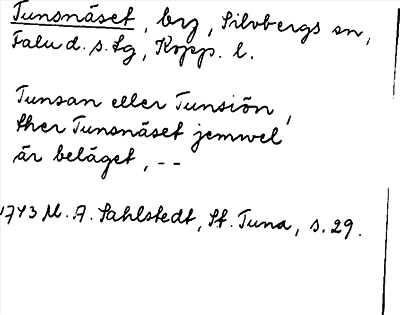 Tunsnäset, by, Silvbergs sn,
Falu d. s. lg, Kopp. l.
Tunsan eller Tunsiön,
ther Tunsnäset jemwel
är beläget, --
1743 M. A. Sahlstedt, St. Tuna, s. 29.